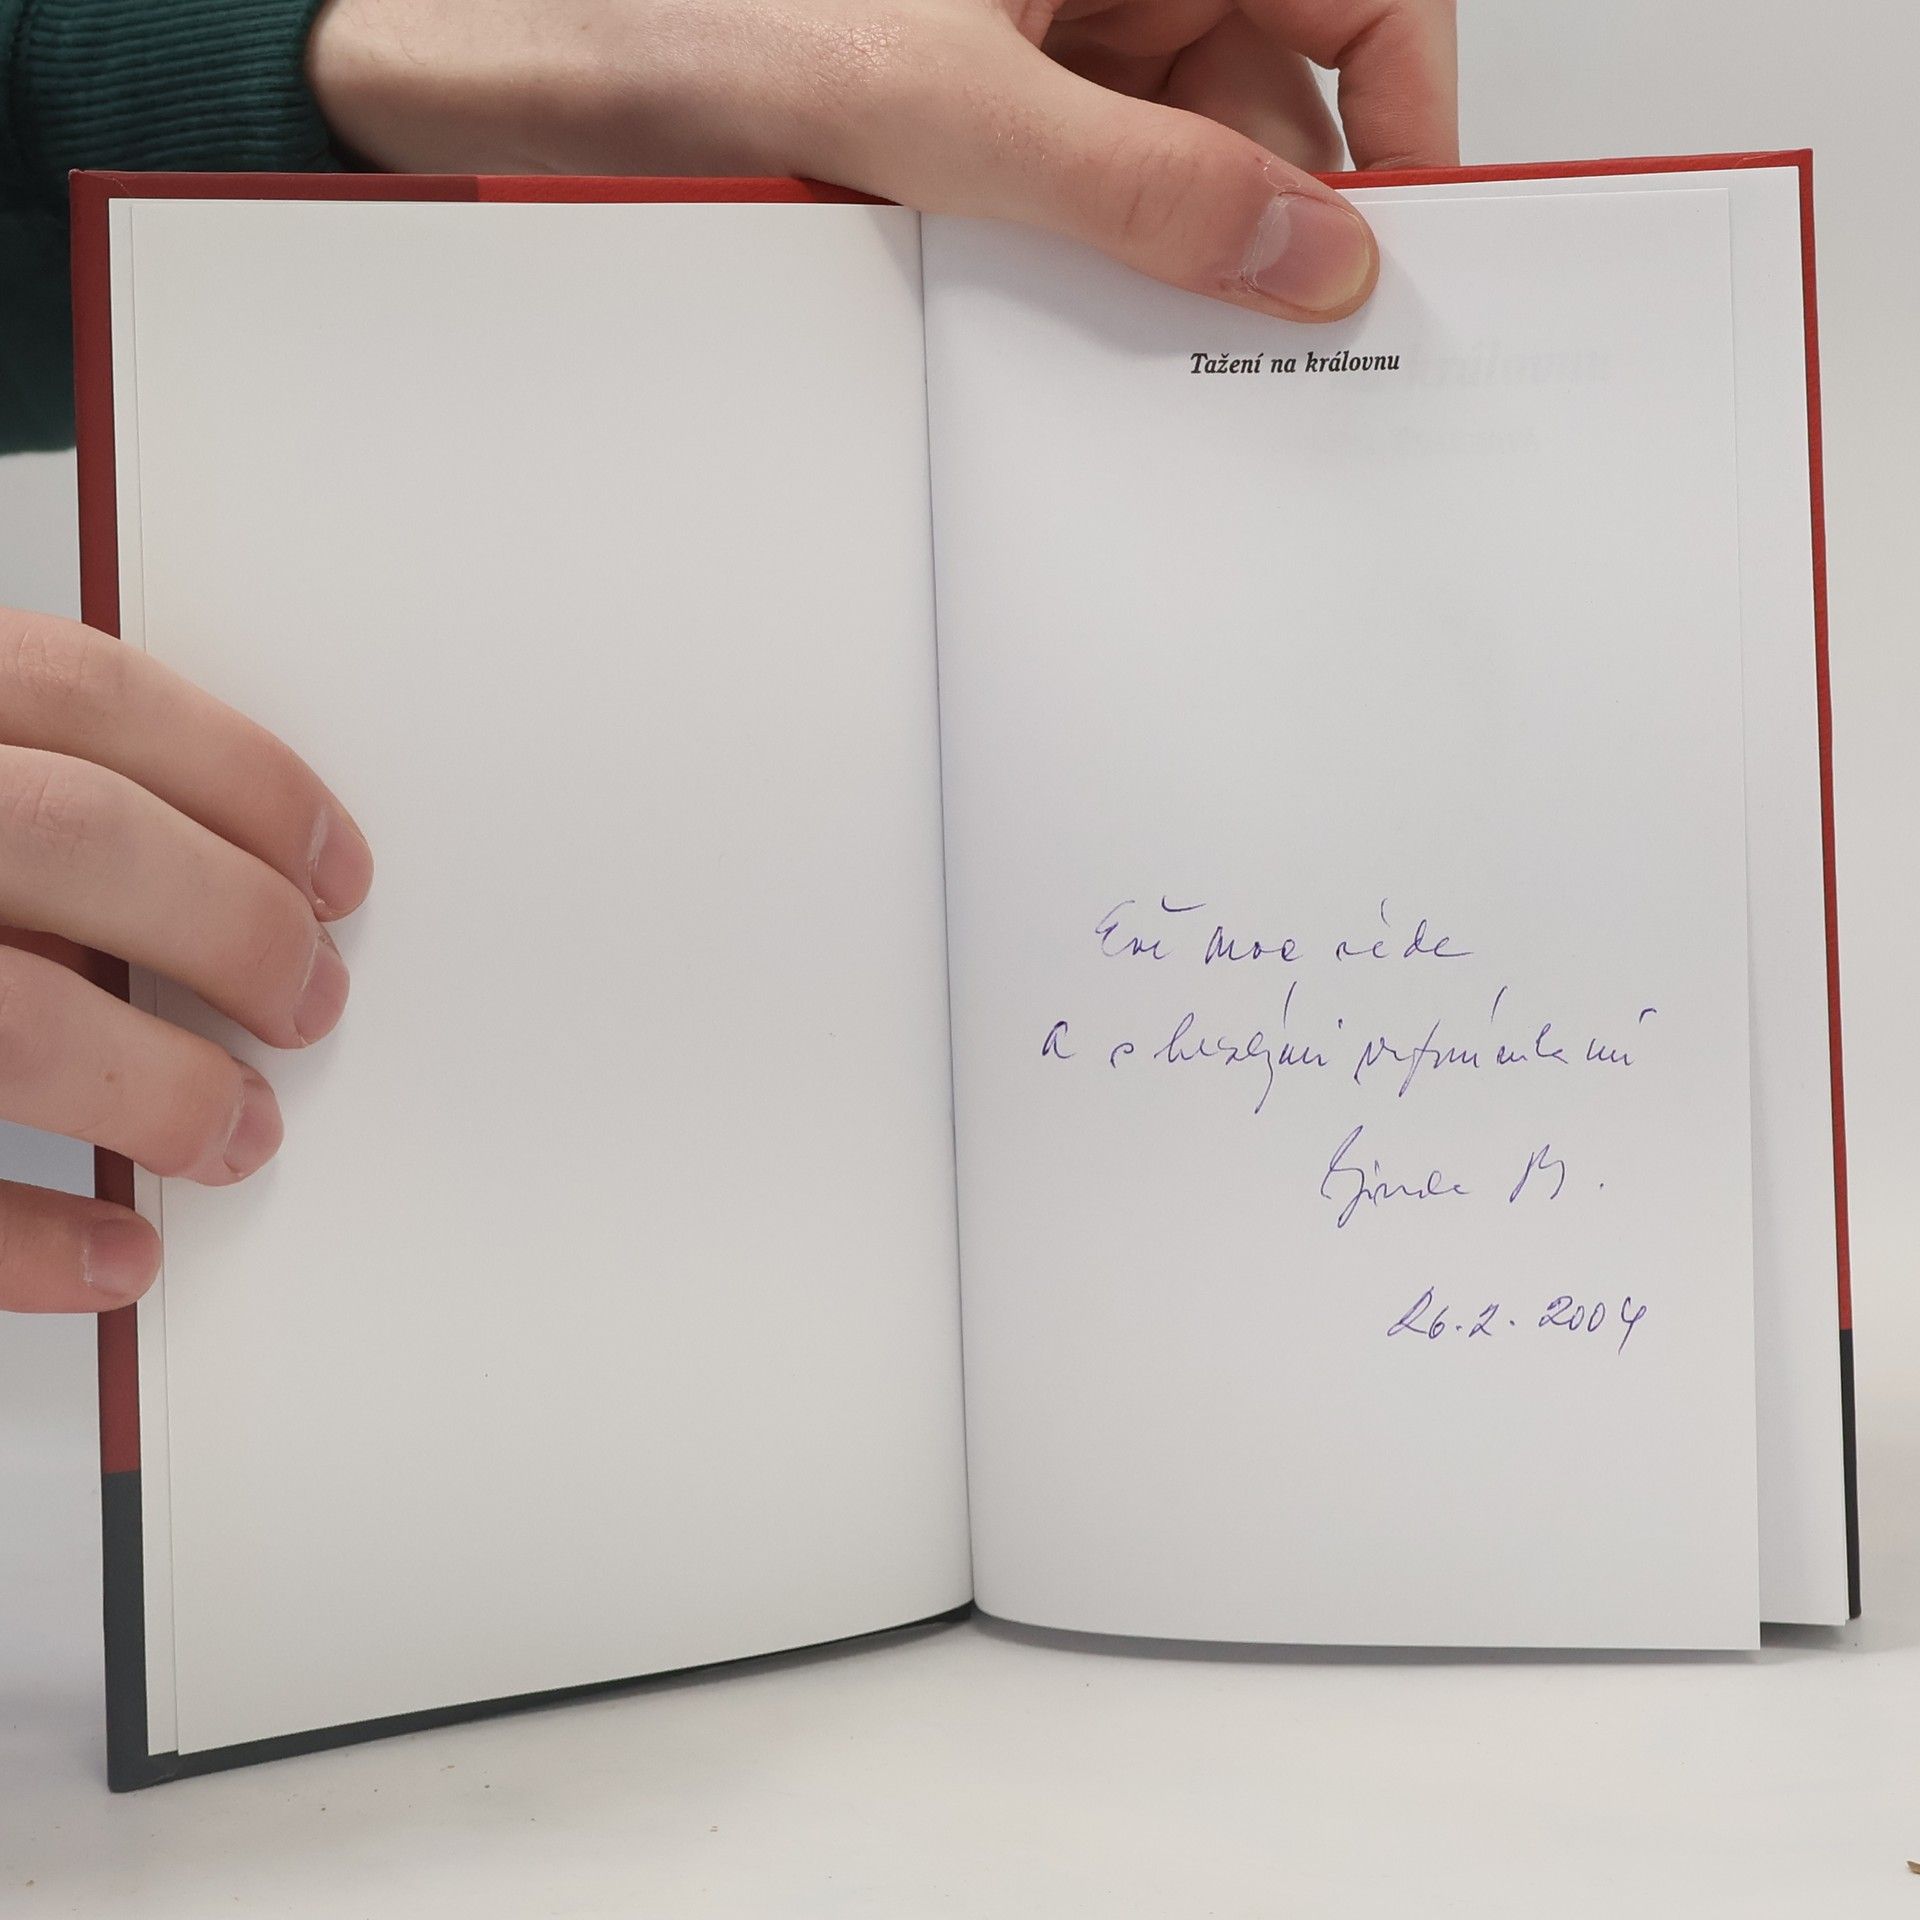 Tažení na královnu
Evě moc ráda
a s hezkými vzpomínkami
Jinda B.
26.2.2004